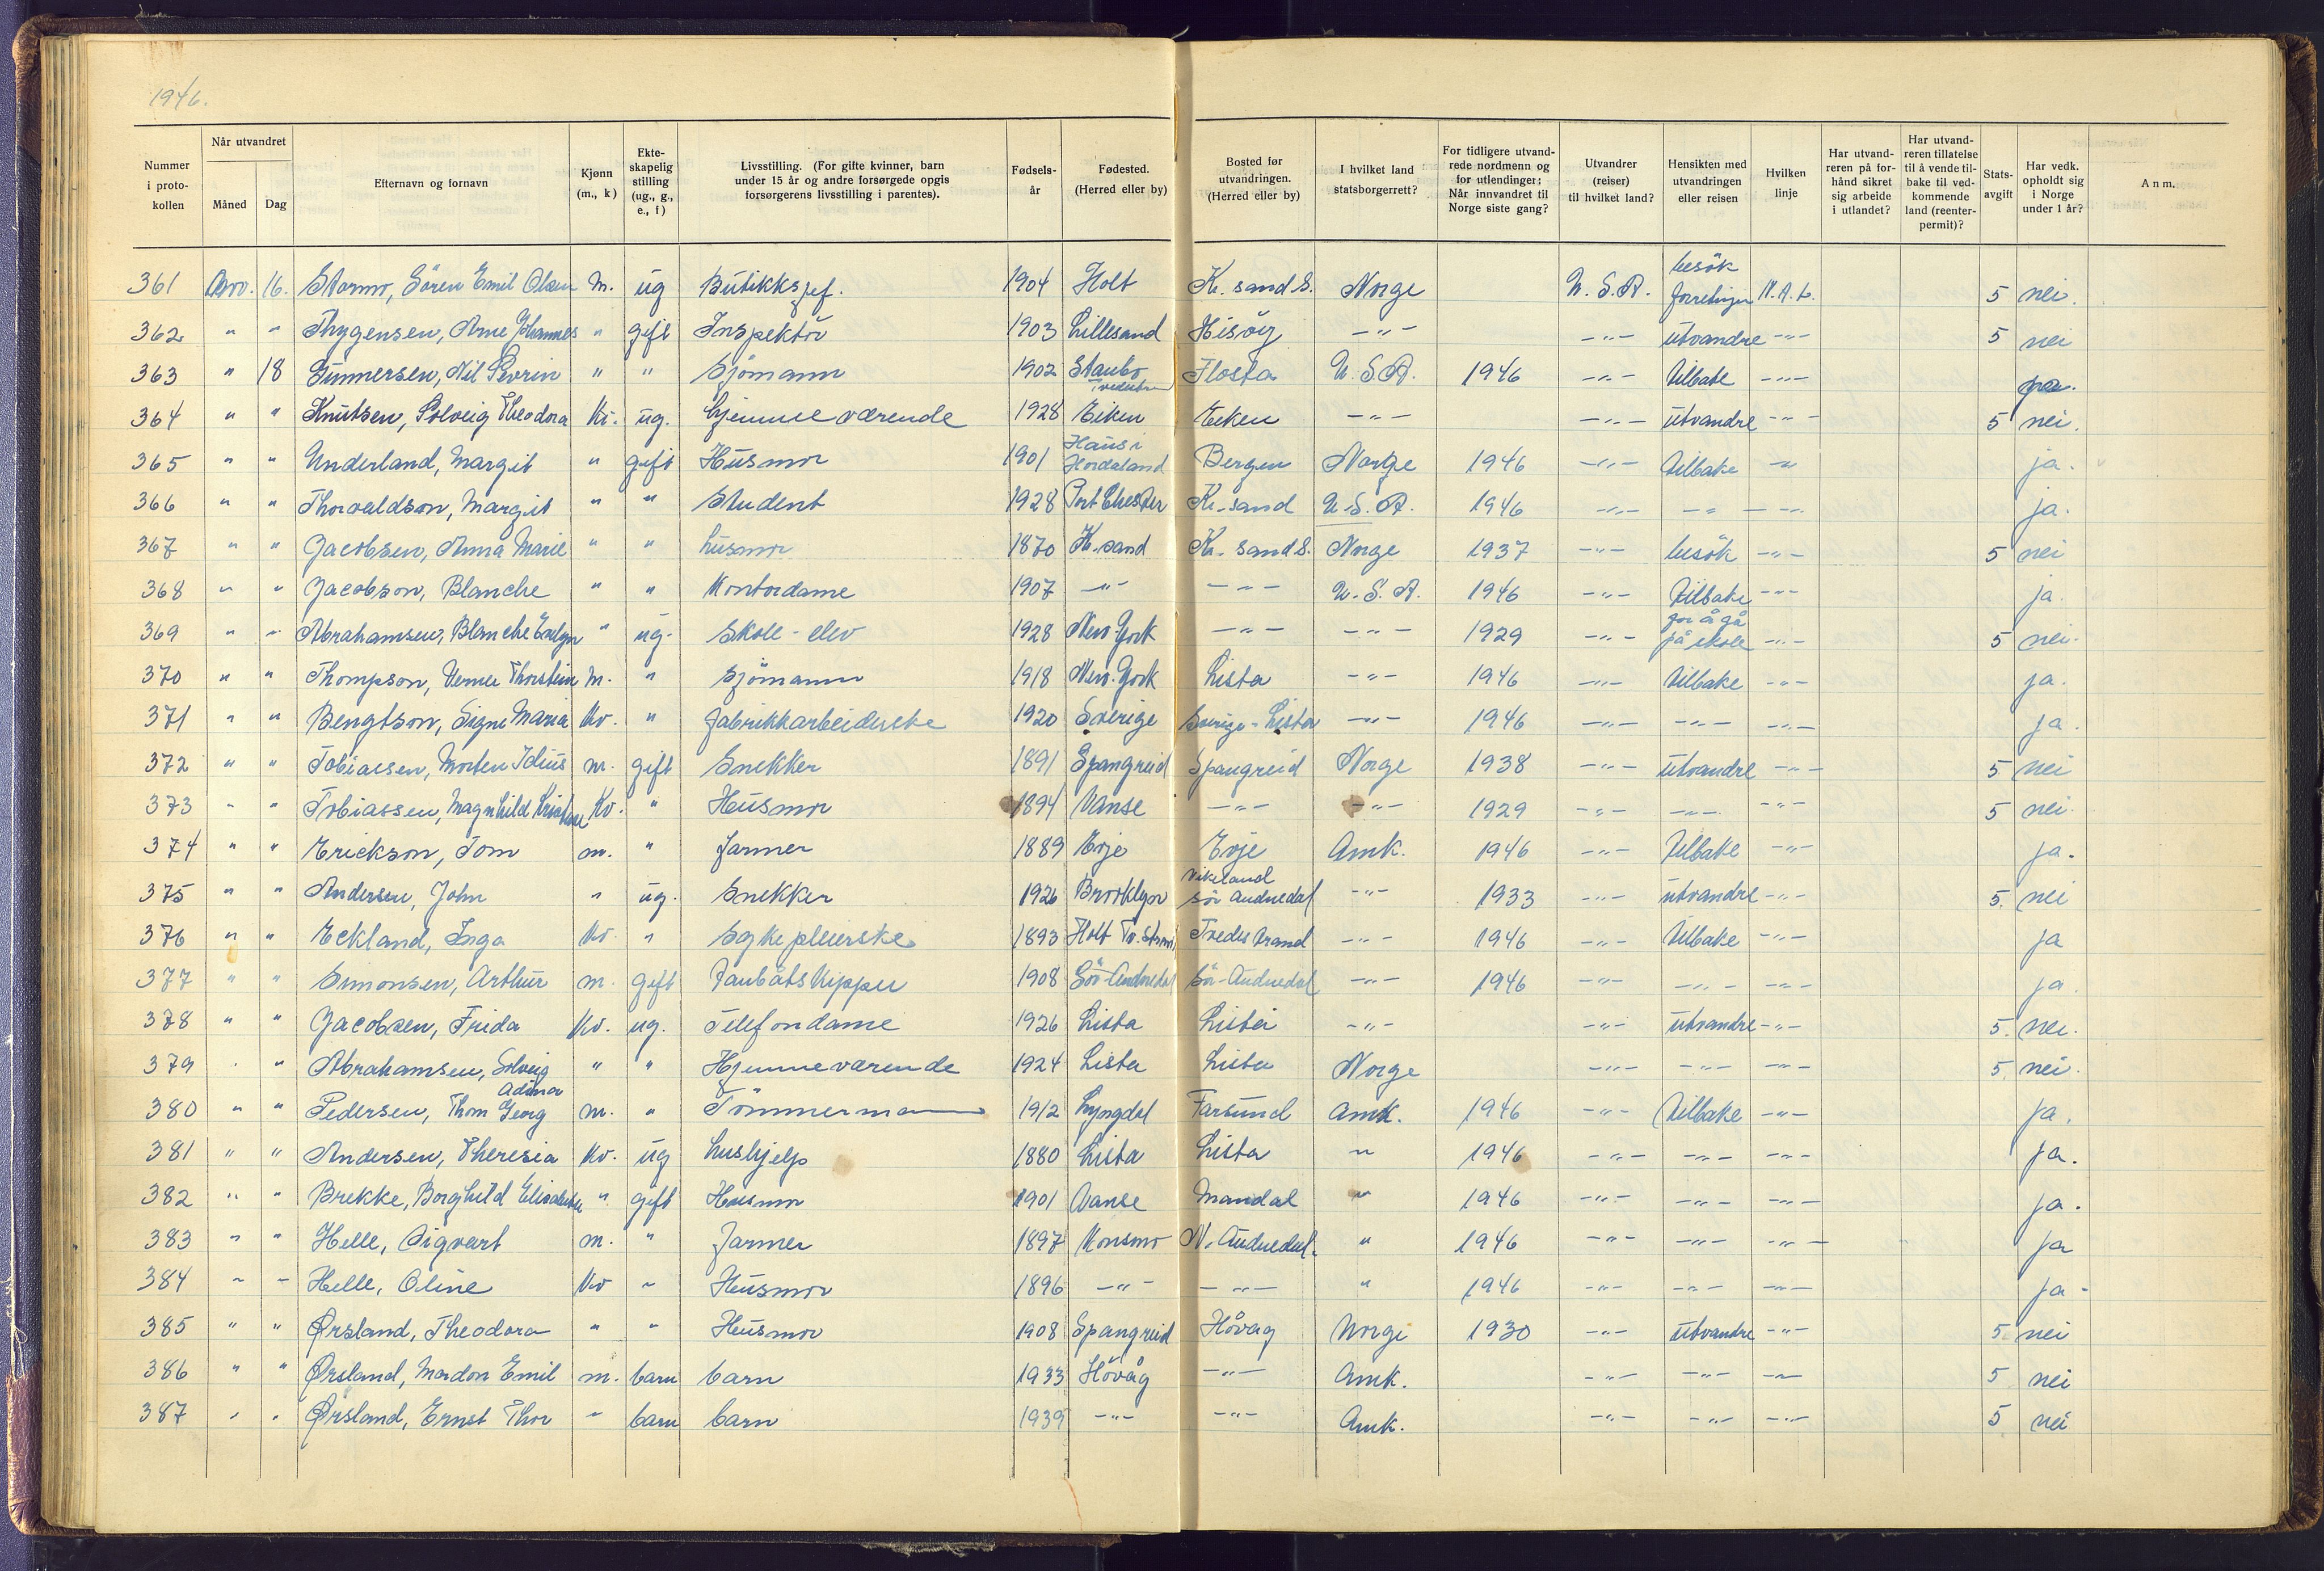 1946.
Nummer i proto- kollen | Når utvandret Måned Dag | Efternavn og fornavn | Kjønn (m., k) | Ekte- skapelig stilling (ug., g., e., f) | Livsstilling. (For gifte kvinner, barn under 15 år og andre forsørgede opgis forsørgerens livsstilling i parentes). | Fødsels- år | Fødested. (Herred eller by) | Bosted før utvandringen. (Herred eller by) | I hvilket land statsborgerrett? | For tidligere utvand- rede nordmenn og for utlendinger: Når innvandret til Norge siste gang? | Utvandrer (reiser) til hvilket land? | Hensikten med utvandringen eller reisen | Hvilken linje | Har utvand- reren på for- hånd sikret sig arbeide i utlandet? | Har utvand- reren tillatelse til å vende til- bake til ved- kommende land (reenter- permit)? | Stats- avgift | Har vedk. opholdt sig i Norge under 1 år? | Anm.
361 Nov. 16. Stormo, Sören Emil Olsen M. ug Butikksjef. 1904 Holt Kr. sand S. Norge U.S.A. besök forretninger N.A.L. 5 nei.
362 " " Thygensen, Arne Johannes " gift Inspektör 1903 Lillesand Hisöy -"- -"- utvandre -"- 5 nei
363 " 18 Gunnersen, Nil Sevrin " " Sjömann 1902 Staubo Tvedestrand Flosta U.S.A. 1946 -"- tilbake -"- ja.
364 " " Knutsen, Solveig Theodora Kv. ug. hjemmeværende 1928 Eiken Eiken -"- -"- utvandre -"- 5 nei.
365 " " Underland, Margit " gift Husmor 1901 Haus i Hordaland Bergen Norge 1946 -"- tilbake -"- ja.
366 " " Thorvaldson, Margit " " Student 1928 Port Chester Kr. sand U.S.A. 1946 -"- -"- -"- ja.
367 " " Jacobsen, Anna Marie " " husmor 1870 Kr. sand Kr. sand S. Norge 1937 -"- besök -"- 5 nei
368 " " Jacobson, Blanche " " Kontordame 1907 -"- -"- U.S.A. 1946 -"- tilbake -"- ja.
369 " " Abrahamsen, Blanche Evelyn " ug. Skole-elev 1928 New-York -"- -"- 1929 -"- for å gå på skole -"- 5 nei.
370 " " Thompson, Verner Thorstein M. " Sjömann 1918 New-York Lista -"- 1946 -"- tilbake -"- ja.
371 " " Bengtson, Signe Maria Kv. " fabrikkarbeiderske 1920 Sverige Sverige-Lista -"- 1946 -"- -"- -"- ja.
372 " " Tobiasen, Morten Idius m. gift Snekker 1891 Spangreid Spangreid Norge 1938 -"- utvandre -"- 5 nei
373 " " Tobiassen, Magnhild Kristine Kv. " Husmor 1894 Vanse -"- -"- 1929 -"- -"- -"- 5 nei.
374 " " Erickson, Tom m. " farmer 1889 Evje Evje Amk. 1946 -"- tilbake -"- ja.
375 " " Andersen, John " ug. Snekker 1926 Brooklyn Vikeland sör Audnedal -"- 1933 -"- utvandre -"- 5. nei
376 " " Eckland, Inga Kv. " Sykepleierske 1893 Holt Tv. strand Tvedestrand -"- 1946 -"- tilbake -"- ja
377 " " Simonsen, Arthur m. gift Taubåtskipper 1908 Sör-Audnedal Sör-Audnedal -"- 1946 -"- -"- -"- ja.
378 " " Jacobsen, Frida Kv. ug. Telefondame 1926 Lista Lista -"- -"- utvandre -"- 5. nei.
379 " " Abrahamsen, Solveig Adina " " Hjemmeværende 1924 Lista Lista Norge -"- -"- -"- 5 nei.
380 " " Pedersen, Thom Georg m. " Tömmermann 1912 Lyngdal Farsund amk. 1946 -"- tilbake -"- ja.
381 " " Andersen, Theresia Kv. ug hushjelp 1880 Lista Lista " 1946 -"- -"- -"- ja.
382 " " Brekke, Borghild Elisabeth " gift Husmor 1901 Vanse Mandal " 1946 -"- -"- -"- ja.
383 " " Helle, Sigvart m. " farmer 1897 Konsmo N. Audnedal. " 1946 -"- -"- -"- ja
384 " " Helle, Oline Kv " Husmor 1896 -"- -"- " 1946 -"- -"- -"- ja-
385 " " Ørsland, Theodora " " Husmor 1908 Spangreid Høvåg Norge 1930 -"- utvandre -"- 5 nei
386 " " Ørsland, Mardon Emil m. barn barn 1933 Hövåg -"- Amk. -"- -"- -"- 5 nei
387 " " Ørsland, Ernst Thor " barn barn 1939 -"- -"- Amk. -"- -"- -"- 5 nei